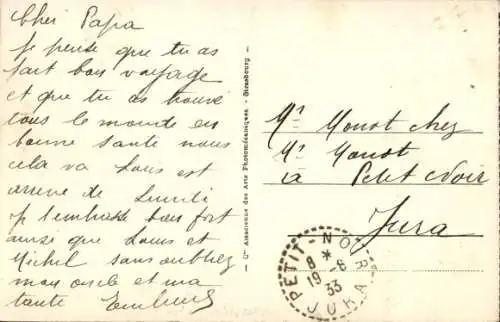 Cher Papa
Je pense que tu as
fait bon voyage
et que tu as trouvé
tous le monde en
bonne santé nous
cela va Louis est
arrivé de
Je t'embrasse bien fort
ainsi que Louis et
Michel sans oublier
mon oncle et ma
tante
- Cie Alsacienne des Arts Photomécaniques - Strasbourg -
Mr Monot chez
Mr Monot
à Petit Noir
Jura
PETIT-NOIR
8 *
19 -6
33
JURA